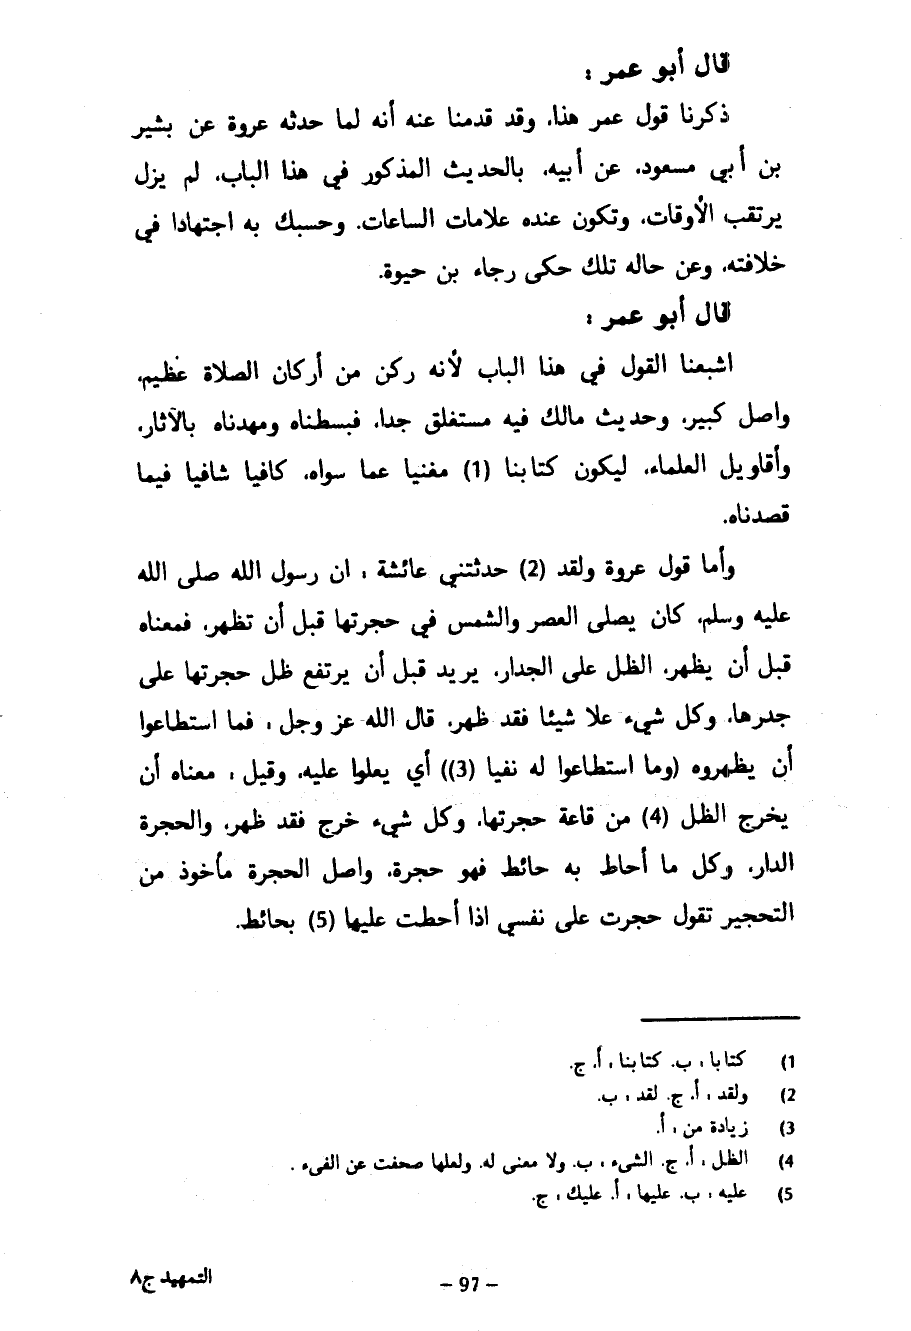 قال أبو عمر :
ذكرنا قول عمر هذا، وقد قدمنا عنه أنه لما حدثه عروة عن بشير
بن أبي مسعود، عن أبيه، بالحديث المذكور في هذا الباب، لم يزل
يرتقب الأوقات، وتكون عنده علامات الساعات. وحسبك به اجتهادا في
خلافته، وعن حاله تلك حكى رجاء بن حيوة.
قال أبو عمر :
اشبعنا القول في هذا الباب لأنه ركن من أركان الصلاة عظيم،
واصل كبير، وحديث مالك فيه مستغلق جدا، فبسطناه ومهدناه بالآثار،
وأقاويل العلماء، ليكون كتابنا (1) مغنيا عما سواه، كافيا شافيا فيما
قصدناه.
وأما قول عروة ولقد (2) حدثتني عائشة ، ان رسول الله صلى الله
عليه وسلم، كان يصلى العصر والشمس في حجرتها قبل أن تظهر، فمعناه
قبل أن يظهر، الظل على الجدار، يريد قبل أن يرتفع ظل حجرتها على
جدرها، وكل شيء علا شيئا فقد ظهر، قال الله عز وجل ، فما استطاعوا
أن يظهروه (وما استطاعوا له نقبا (3)) أي يعلوا عليه، وقيل ، معناه أن
يخرج الظل (4) من قاعة حجرتها، وكل شيء خرج فقد ظهر، والحجرة
الدار، وكل ما أحاط به حائط فهو حجرة، واصل الحجرة مأخوذ من
التحجير تقول حجرت على نفسي اذا أحطت عليها (5) بحائط.
1) كتابا ، ب. كتابنا ، أ. ج.
2) ولقد ، أ. ج. لقد ، ب.
3) زيادة من ، أ.
4) الظل ، أ. ج. الشيء ، ب. ولا معنى له. ولعلها صحفت عن الفىء .
5) عليه ، ب. عليها ، أ. عليك ، ج.
– 97 –
التمهيد ج٨